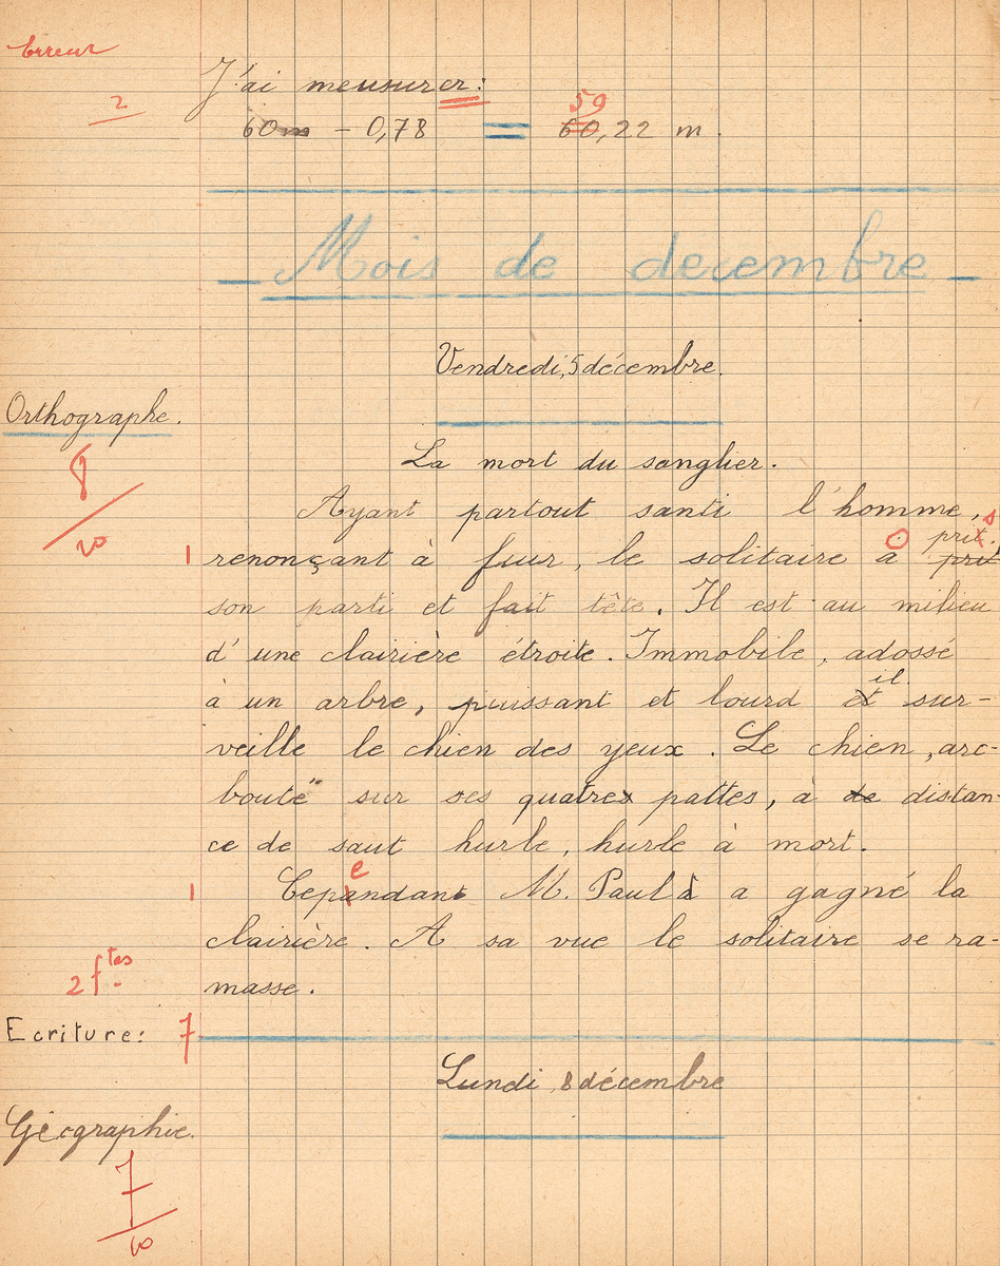 Erreur
J'ai meusurer:
2
59
60m - 0,78 = 60,22 m.
Mois de decembre
Vendredi, 5 décembre.
Orthographe.
La mort du sanglier.
8
20
Ayant partout santi l'homme,
s
prix.
1 renonçant à fuir, le solitaire a pris
son parti et fait tête. Il est au milieu
d'une clairière étroite. Immobile, adossé
il
à un arbre, puissant et lourd et sur-
veille le chien des yeux. Le chien, arc-
bouté" sur ses quatres pattes, à de distan-
ce de saut hurle, hurle à mort.
e
1 Cepandant M. Paul à a gagné la
clairière. A sa vue le solitaire se ra-
2 f.tes
masse.
Ecriture: 7
Lundi, 8 décembre
Géographie.
7
10